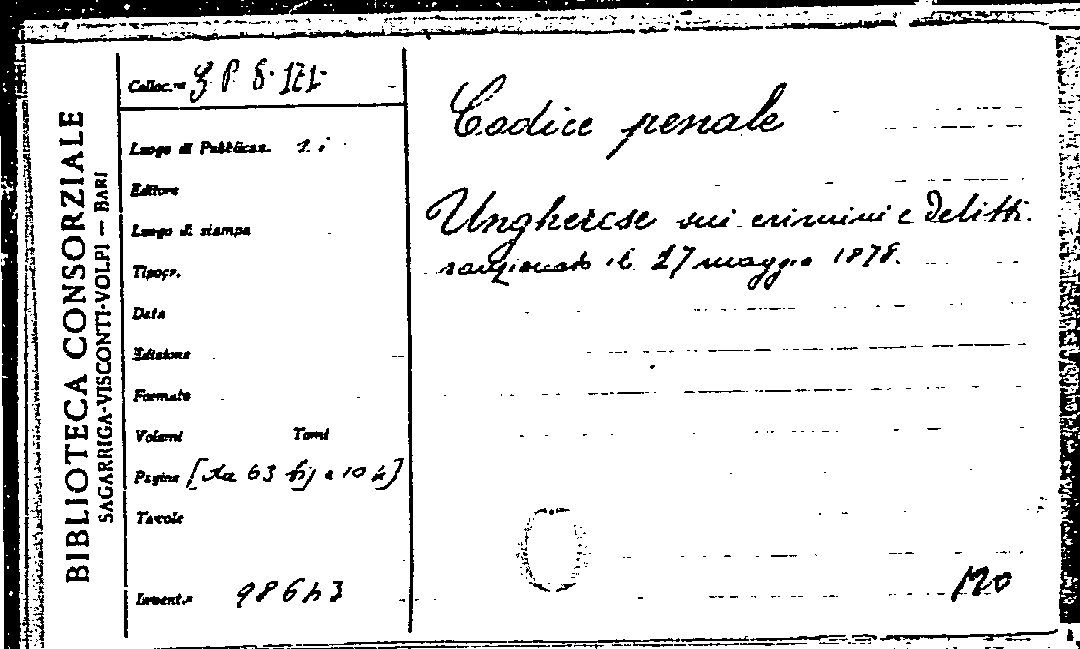 BIBLIOTECA CONSORZIALE
SAGARRIGA-VISCONTI-VOLPI — BARI
Colloc.ne
Luogo di Pubblicaz.
Editore
Luogo di stampa
Tipogr.
Data
Edizione
Formato
Volumi Tomi
Pagine [da 63 bis a 104]
Tavole
Invent.o 98643
Codice penale
Ungherese sui crimini e delitti
sanzionato il 27 maggio 1878.